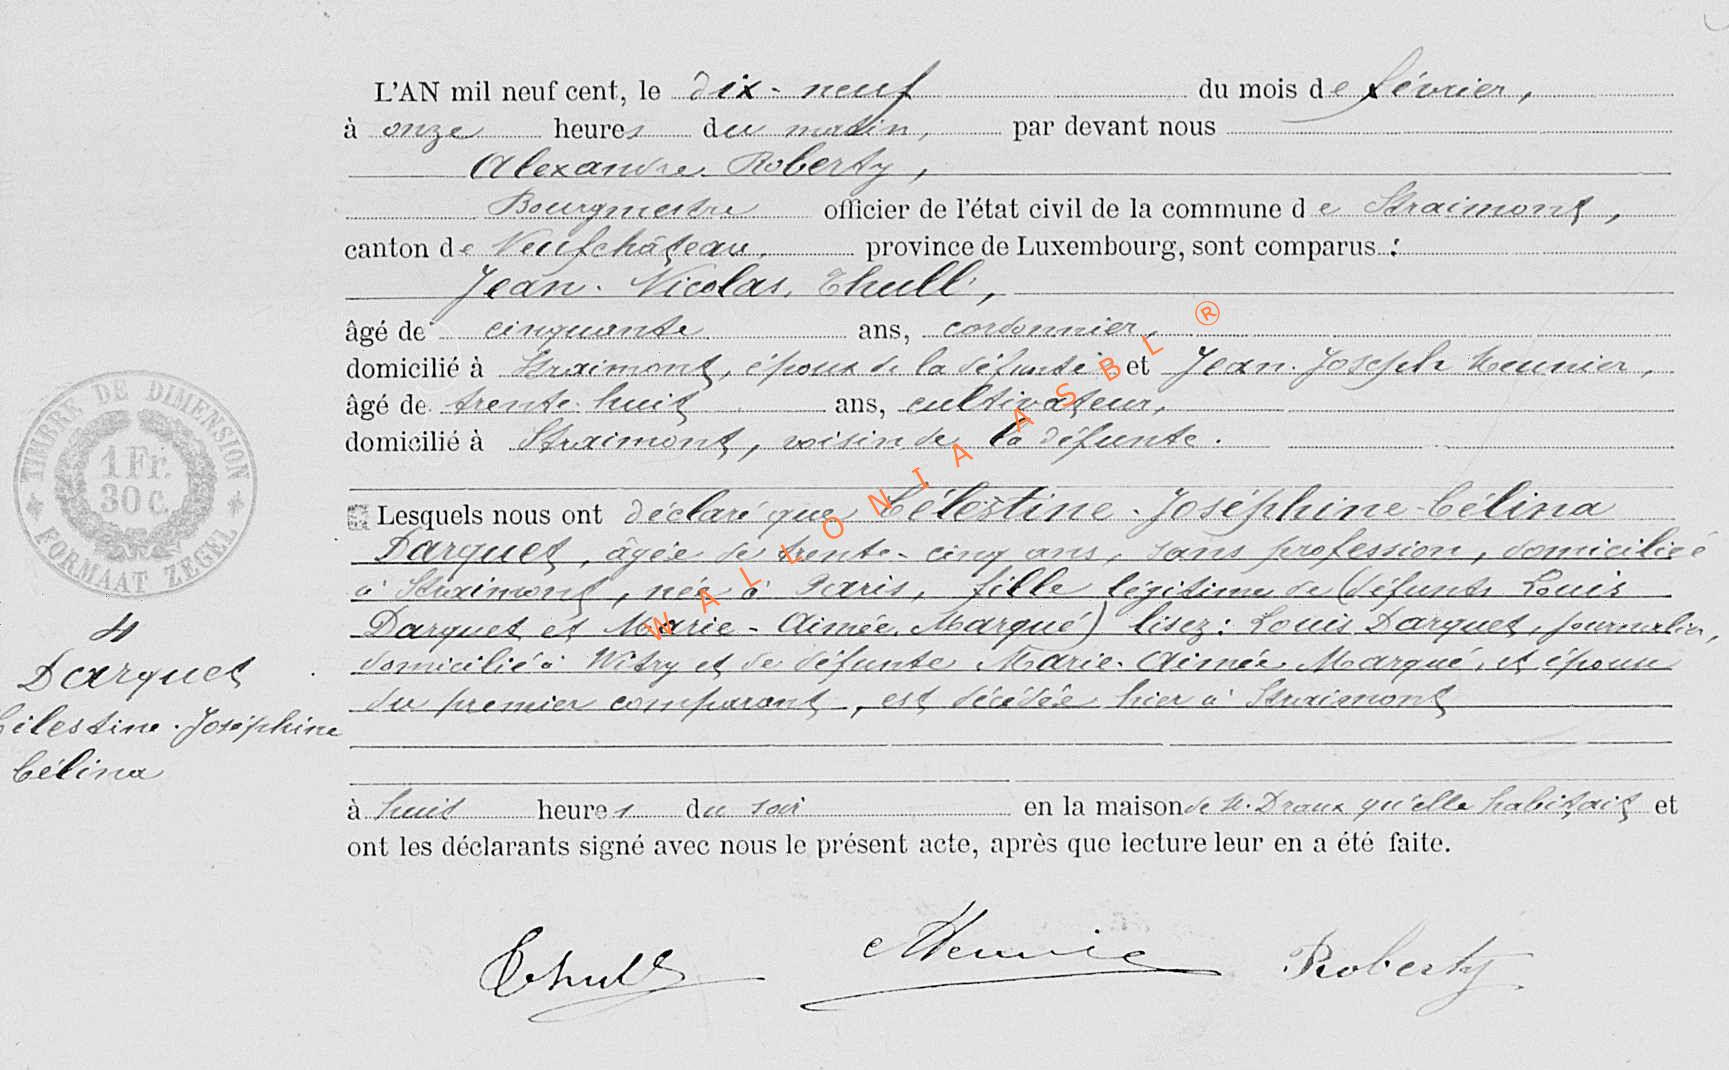 L'AN mil neuf cent, le dix-neuf du mois de février,
à onze heures du matin, par devant nous
Alexandre Roberty,
Bourgmestre officier de l'état civil de la commune de Straimont,
canton de Neufchâteau, province de Luxembourg, sont comparus :
Jean-Nicolas Thull,
âgé de cinquante ans, cordonnier,
domicilié à Straimont, époux de la défunte et Jean-Joseph Meunier,
âgé de trente-huit ans, cultivateur,
domicilié à Straimont, voisin de la défunte.
Lesquels nous ont déclaré que Célestine-Joséphine-Célina
Darquet, âgée de trente-cinq ans, sans profession, domiciliée
à Straimont, née à Paris, fille légitime de (défunts Louis
Darquet et Marie-Aimée Marqué) lisez: Louis Darquet, journalier,
domicilié à Witry et de défunte Marie-Aimée Marqué, et épouse
du premier comparant, est décédée hier à Straimont
à huit heures du soir en la maison de N. Draux qu'elle habitait et
ont les déclarants signé avec nous le présent acte, après que lecture leur en a été faite.
Thull Meunier Roberty
TIMBRE DE DIMENSION
1 Fr.
30 c.
FORMAAT ZEGEL
4
Darquet
Célestine-Joséphine
Célina
WALLONIA ASBL ®